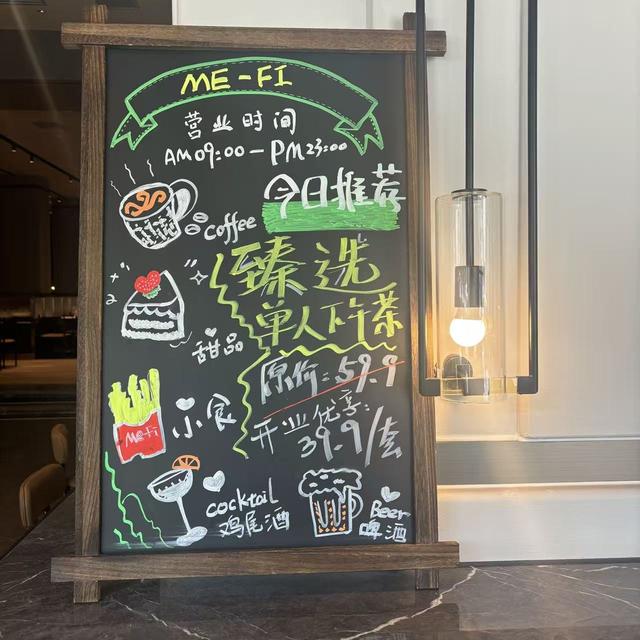 ME-FI
营业时间
AM09:00-PM23:00
今日推荐
coffee
臻选
单人下午茶
甜品
原价:59.9
开业优享:
39.9/套
小食
Me-Fi
cocktail
鸡尾酒
Beer
啤酒